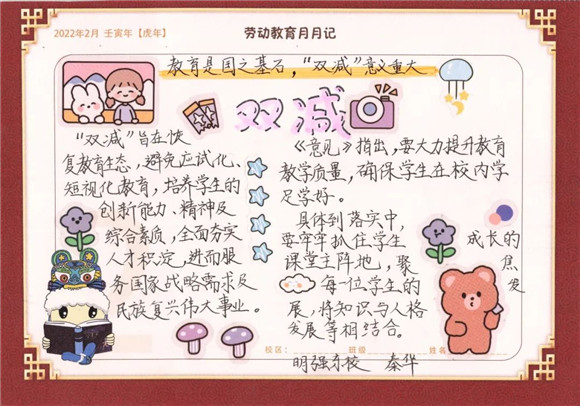 2022年2月 壬寅年【虎年】
劳动教育月月记
教育是国之基石，“双减”意义重大
双减
“双减”旨在恢
复教育生态，避免应试化、
短视化教育，培养学生的
创新能力、精神及
综合素质，全面夯实
人才积淀，进而服
务国家战略需求及
民族复兴伟大事业。
《意见》指出，要大力提升教育
教学质量，确保学生在校内学
足学好。
具体到落实中，
要牢牢抓住学生 成长的
课堂主阵地，聚 焦
每一位学生的 发
展，将知识与人格
发展等相结合。
校区： 班级 姓名
明强东校 秦华